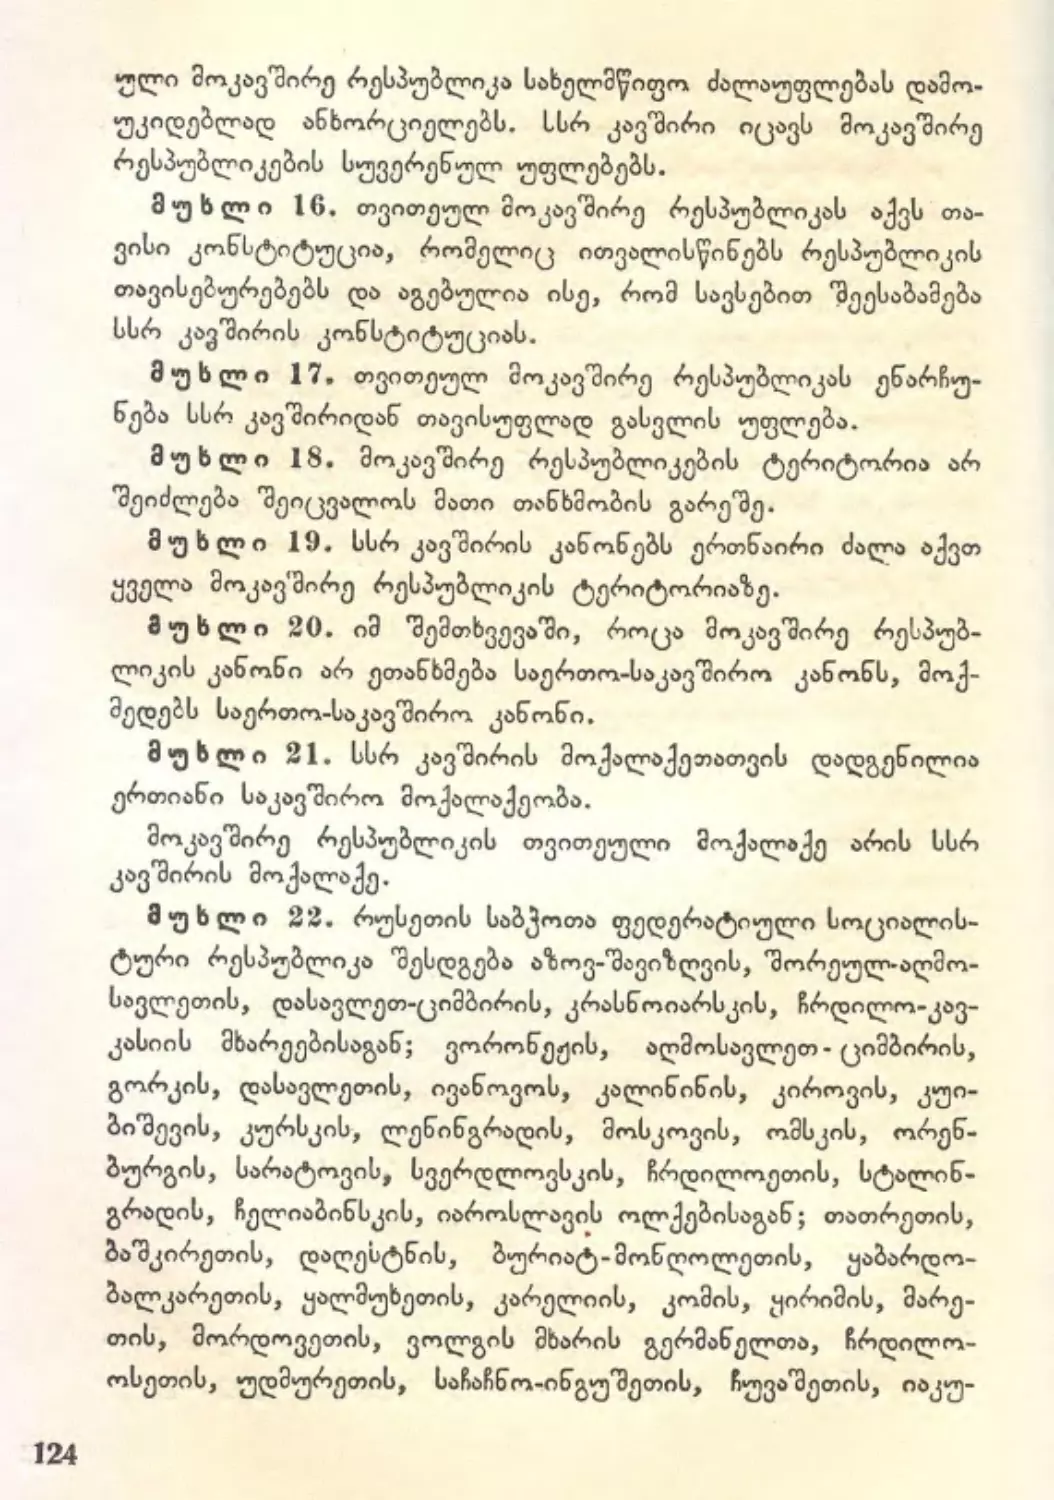 ული მოკავშირე რესპუბლიკა სახელმწიფო ძალაუფლებას დამო-
უკიდებლად ანხორციელებს. სსრ კავშირი იცავს მოკავშირე
რესპუბლიკების სუვერენულ უფლებებს.
მუხლი 16. თვითეულ მოკავშირე რესპუბლიკას აქვს თა-
ვისი კონსტიტუცია, რომელიც ითვალისწინებს რესპუბლიკის
თავისებურებებს და აგებულია ისე, რომ სავსებით შეესაბამება
სსრ კავშირის კონსტიტუციას.
მუხლი 17. თვითეულ მოკავშირე რესპუბლიკას ენარჩუ-
ნება სსრ კავშირიდან თავისუფლად გასვლის უფლება.
მუხლი 18. მოკავშირე რესპუბლიკების ტერიტორია არ
შეიძლება შეიცვალოს მათი თანხმობის გარეშე.
მუხლი 19. სსრ კავშირის კანონებს ერთნაირი ძალა აქვთ
ყველა მოკავშირე რესპუბლიკის ტერიტორიაზე.
მუხლი 20. იმ შემთხვევაში, როცა მოკავშირე რესპუბ-
ლიკის კანონი არ ეთანხმება საერთო-საკავშირო კანონს, მოქ-
მედებს საერთო-საკავშირო კანონი.
მუხლი 21. სსრ კავშირის მოქალაქეთათვის დადგენილია
ერთიანი საკავშირო მოქალაქეობა.
მოკავშირე რესპუბლიკის თვითეული მოქალაქე არის სსრ
კავშირის მოქალაქე.
მუხლი 22. რუსეთის საბჭოთა ფედერატიული სოციალის-
ტური რესპუბლიკა შესდგება აზოვ-შავიზღვის, შორეულ-აღმო-
სავლეთის, დასავლეთ-ციმბირის, კრასნოიარსკის, ჩრდილო-კავ-
კასიის მხარეებისაგან; ვორონეჟის, აღმოსავლეთ-ციმბირის,
გორკის, დასავლეთის, ივანოვოს, კალინინის, კიროვის, კუი-
ბიშევის, კურსკის, ლენინგრადის, მოსკოვის, ომსკის, ორენ-
ბურგის, სარატოვის, სვერდლოვსკის, ჩრდილოეთის, სტალინ-
გრადის, ჩელიაბინსკის, იაროსლავის ოლქებისაგან; თათრეთის,
ბაშკირეთის, დაღესტნის, ბურიატ-მონღოლეთის, ყაბარდო-
ბალკარეთის, ყალმუხეთის, კარელიის, კომის, ყირიმის, მარე-
თის, მორდოვეთის, ვოლგის მხარის გერმანელთა, ჩრდილო-
ოსეთის, უდმურეთის, საჩაჩნო-ინგუშეთის, ჩუვაშეთის, იაკუ-
124